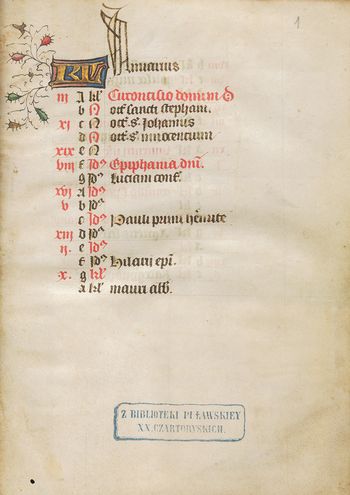 1
Januarius
KL
iii A kl' Circoncisio domini D
b N oct' sancti stephani.
xi c N oct' s. Johannis
d N oct' s. innocentium
xix e N
viii f Id' Epiphania dni.
g Id' Luciani conf.
xvi A Id'
v b Id'
c Id' Pauli primi h'mite
xiii d Id'
ii. e Id'
f Id' Hilarii epi.
x. g kl'
a kl' mauri abb.
Z BIBLIOTEKI PUŁAWSKIEY
XX. CZARTORYSKICH.